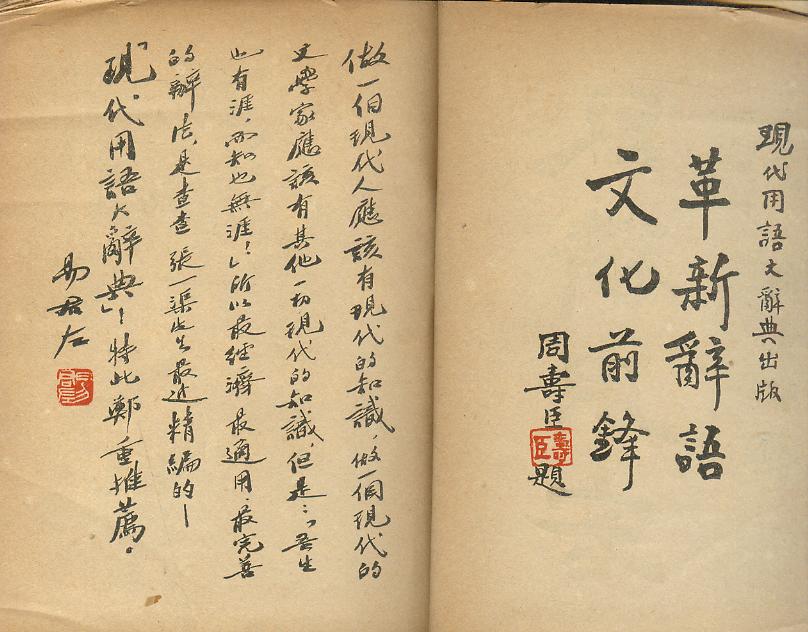 現代用語大辭典出版
革新辭語
文化前鋒
周壽臣題
壽臣
做一個現代人應該有現代的知識，做一個現代的
文學家應該有其他一切現代的知識，但是：「吾生
也有涯，而知也無涯！」所以最經濟、最適用、最完善
的辦法，是查查張一渠先生最近精編的—
「現代用語大辭典」！特此鄭重推薦。
易君左